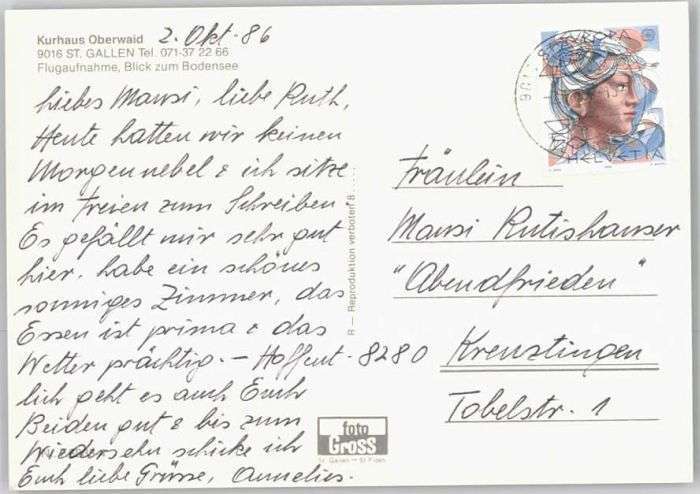 Kurhaus Oberwaid
9016 ST. GALLEN Tel. 071-37 22 66
Flugaufnahme, Blick zum Bodensee
2. Okt. 86
Liebes Mausi, liebe Ruth,
Heute hatten wir keinen
Morgennebel & ich sitze
im Freien zum Schreiben.
Es gefällt mir sehr gut
hier, habe ein schönes
sonniges Zimmer, das
Essen ist prima & das
Wetter prächtig. – Hoffent-
lich geht es auch Euch
Beiden gut & bis zum
Wiedersehn schicke ich
Euch liebe Grüsse, Annelies.
R — Reproduktion verboten 8
HELVETIA
Fräulein
Mausi Rutishauser
"Abendfrieden"
8280 Kreuzlingen
Tobelstr. 1
foto
Gross
St. Gallen